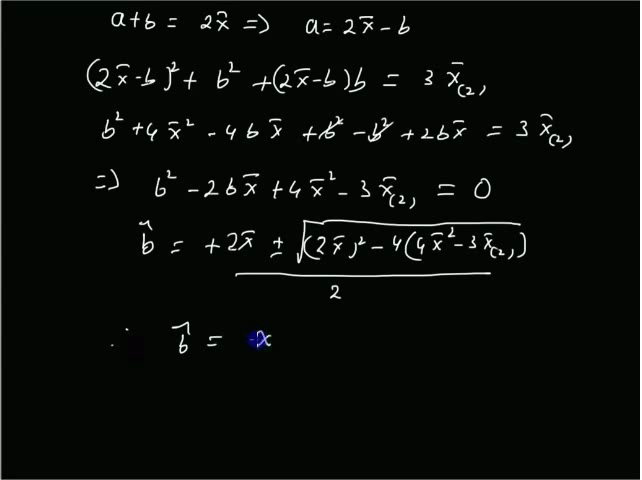 a+b = 2x̄ => a = 2x̄ - b
(2x̄-b)² + b² + (2x̄-b)b = 3 x̄₍₂₎
b² + 4x̄² - 4bx̄ + b² - b² + 2bx̄ = 3 x̄₍₂₎
=> b² - 2bx̄ + 4x̄² - 3x̄₍₂₎ = 0
b̂ = +2x̄ ± √((2x̄)² - 4(4x̄² - 3x̄₍₂₎))
2
∴ b̂ = x